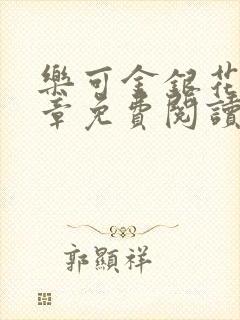 樂可金銀花
章免費閱讀
郭顯祥